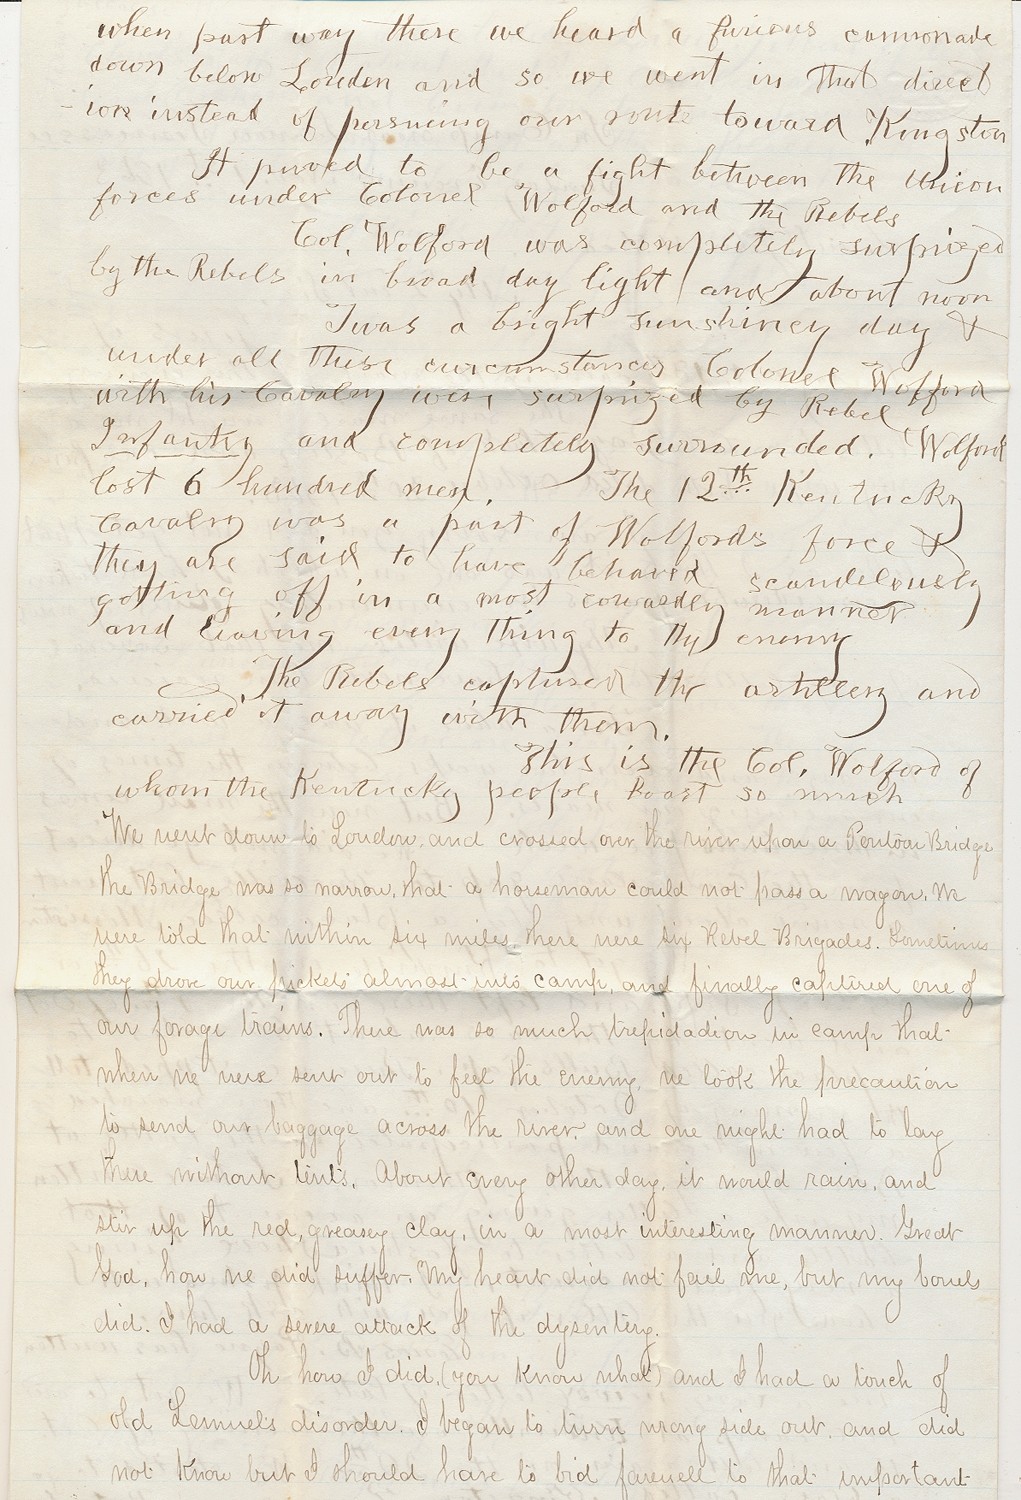 when part way there we heard a furious cannonade
down below Louden and so we went in that direct
-ion instead of persueing our route toward Kingston
It proved to be a fight between the Union
forces under Colonel Wolford and the Rebels
Col. Wolford was completely surprized
by the Rebels in broad day light and about noon
Twas a bright sunshiney day &
under all these circumstances Colonel Wolford
with his Cavalry were surprized by Rebel
Infantry and completely surrounded. Wolford
lost 6 hundred men. The 12th Kentucky
Cavalry was a part of Wolfords force &
they are said to have behaved scandelously
getting off in a most cowardly manner
and leaving every thing to the enemy
The Rebels captured the artillery and
carried it away with them.
This is the Col. Wolford of
whom the Kentucky people boast so much
We went down to Loudon, and crossed over the river upon a Pontoon Bridge
the Bridge was so narrow, that a horseman could not pass a wagon. We
were told that within six miles, there were six Rebel Brigades. Sometimes
they drove our pickets almost into camp, and finally captured one of
our forage trains. There was so much trepidadion in camp that
when we were sent out to feel the enemy, we took the precaution
to send our baggage across the river, and one night had to lay
there without tents. About every other day, it would rain, and
stir up the red, greasey clay, in a most interesting manner. Great
God, how we did suffer. My heart did not fail me, but my bowels
did. I had a severe attack of the dysentery.
Oh how I did, (you know what) and I had a touch of
old Lemuel's disorder. I began to turn wrong side out, and did
not know but I should have to bid farewell to that important